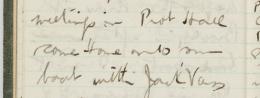 meetings in Prot Hall
come home onto our
boat with Jack Vass